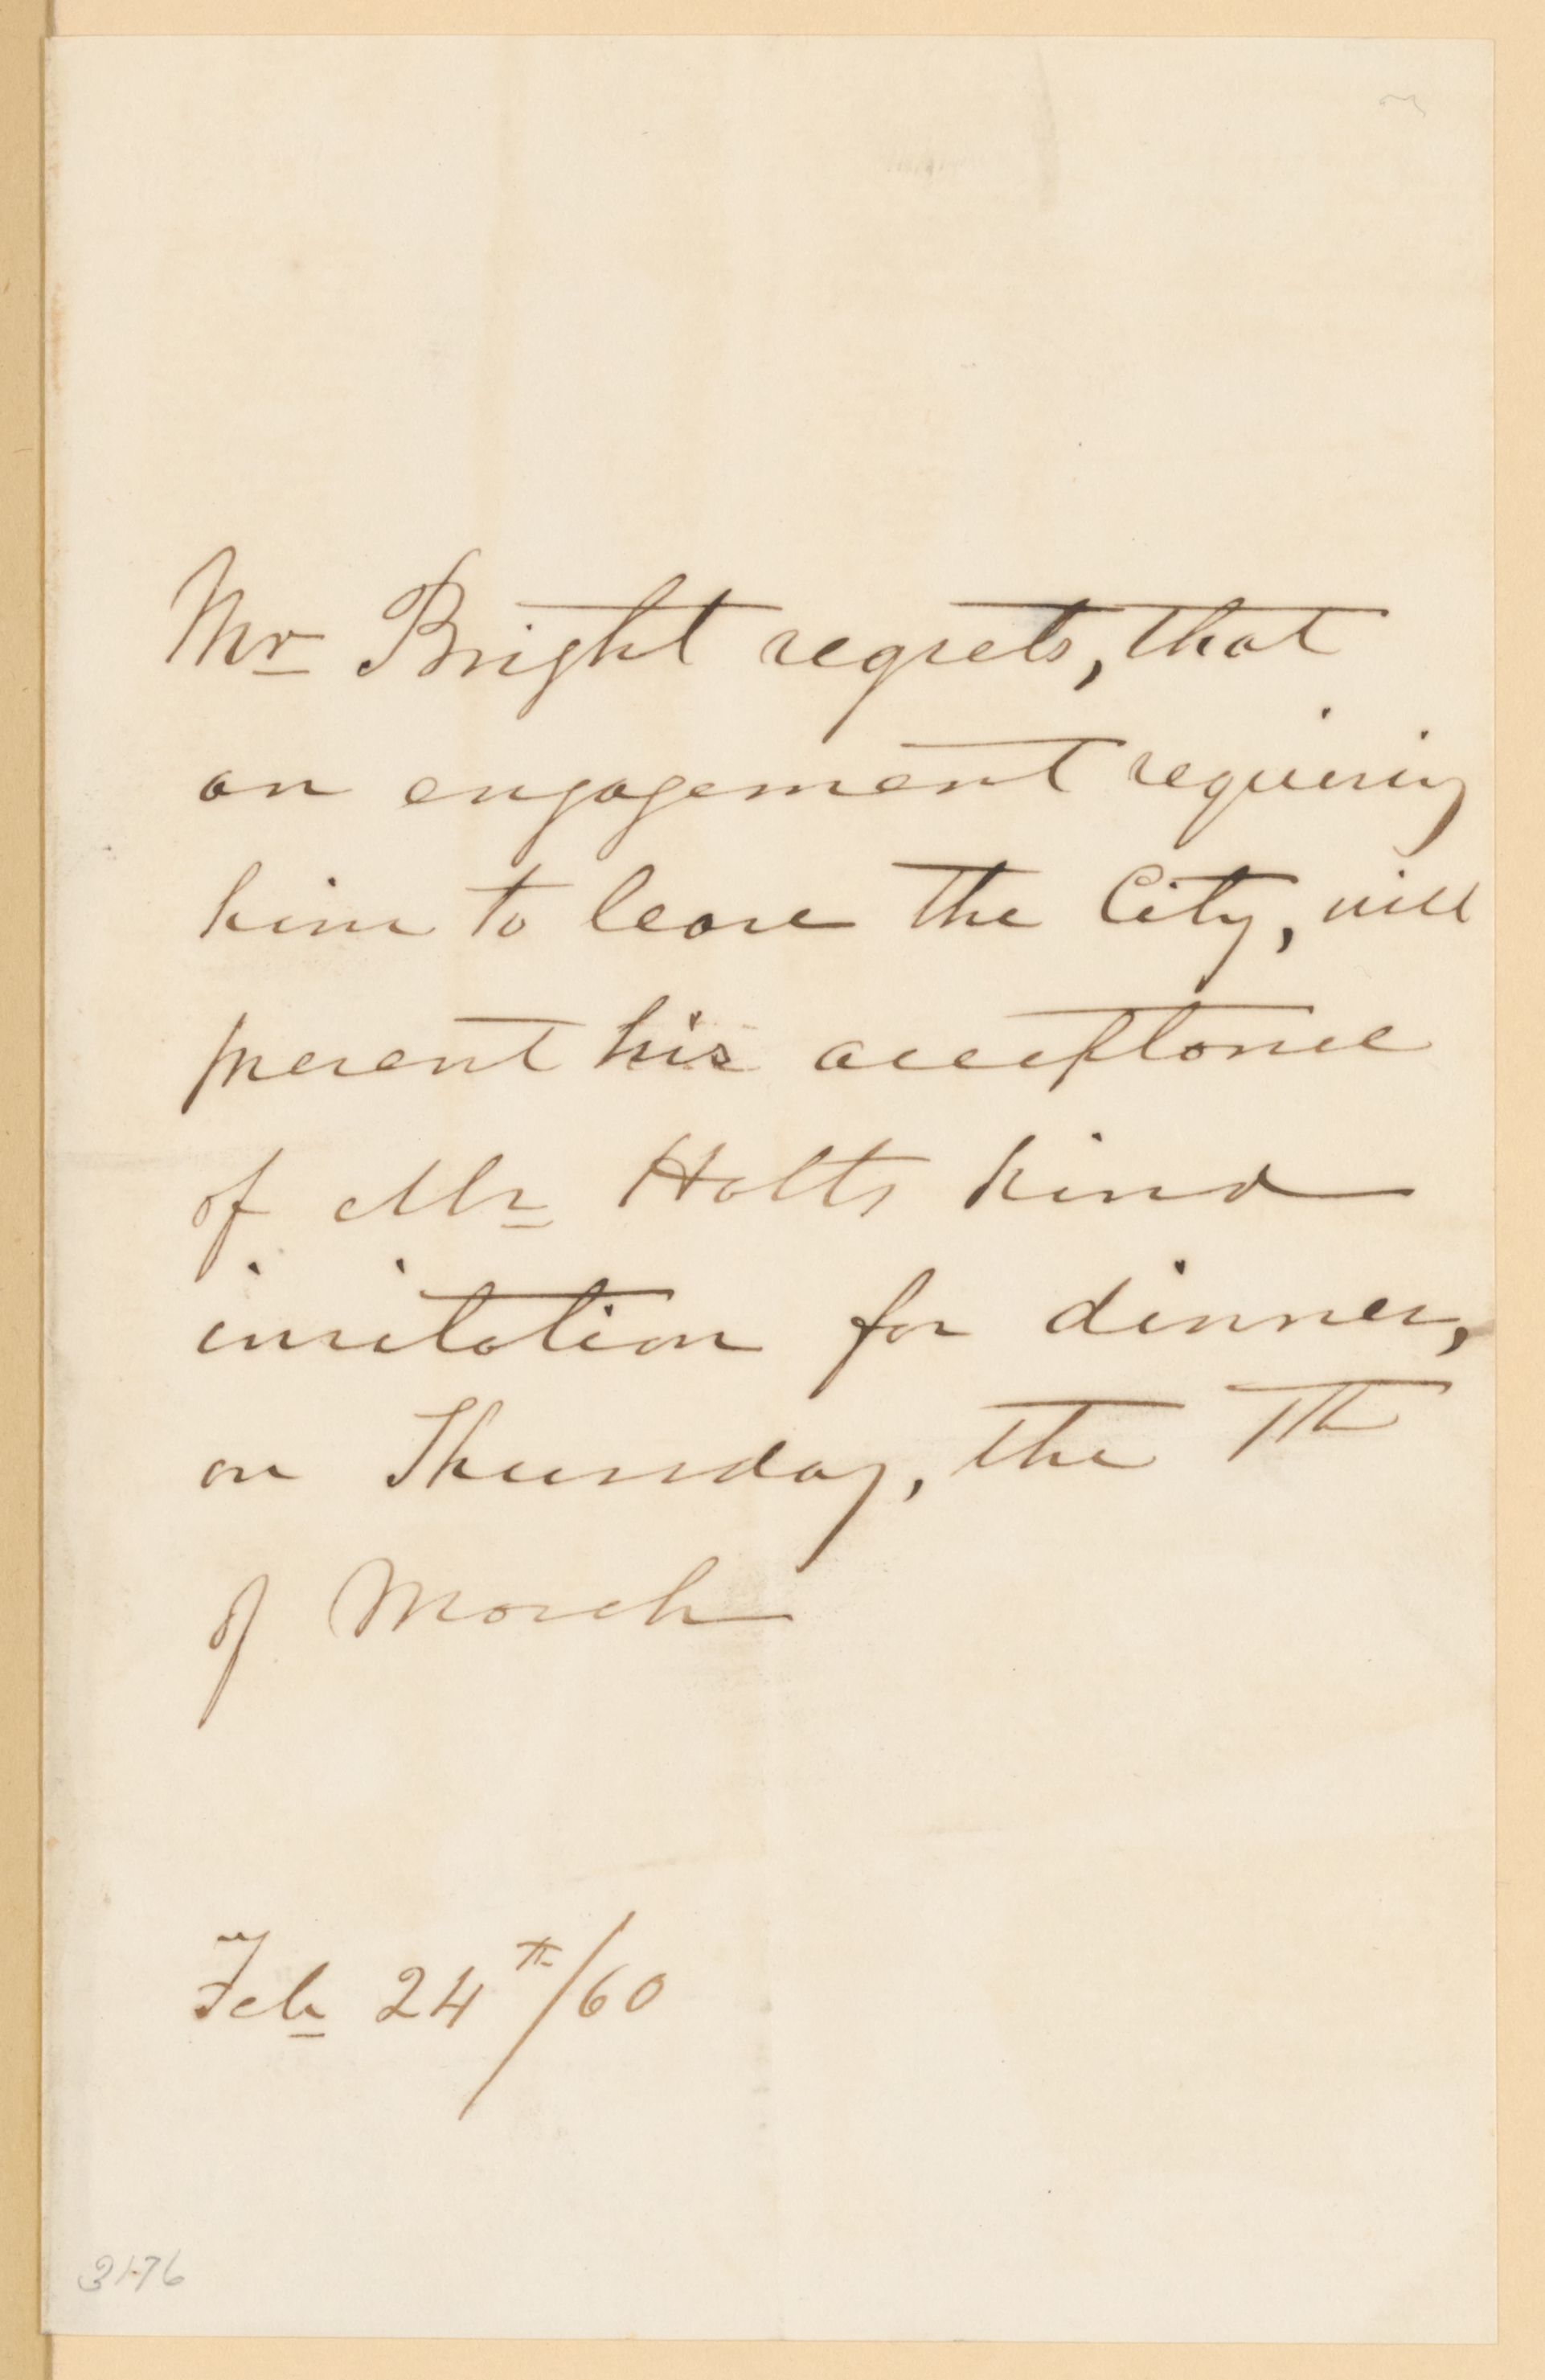 Mr Bright regrets, that
an engagement requiring
him to leave the City, will
prevent his acceptance
of Mr Holts kind
invitation for dinner,
on Thursday, the 1th
of March
Feb 24th/60
3176